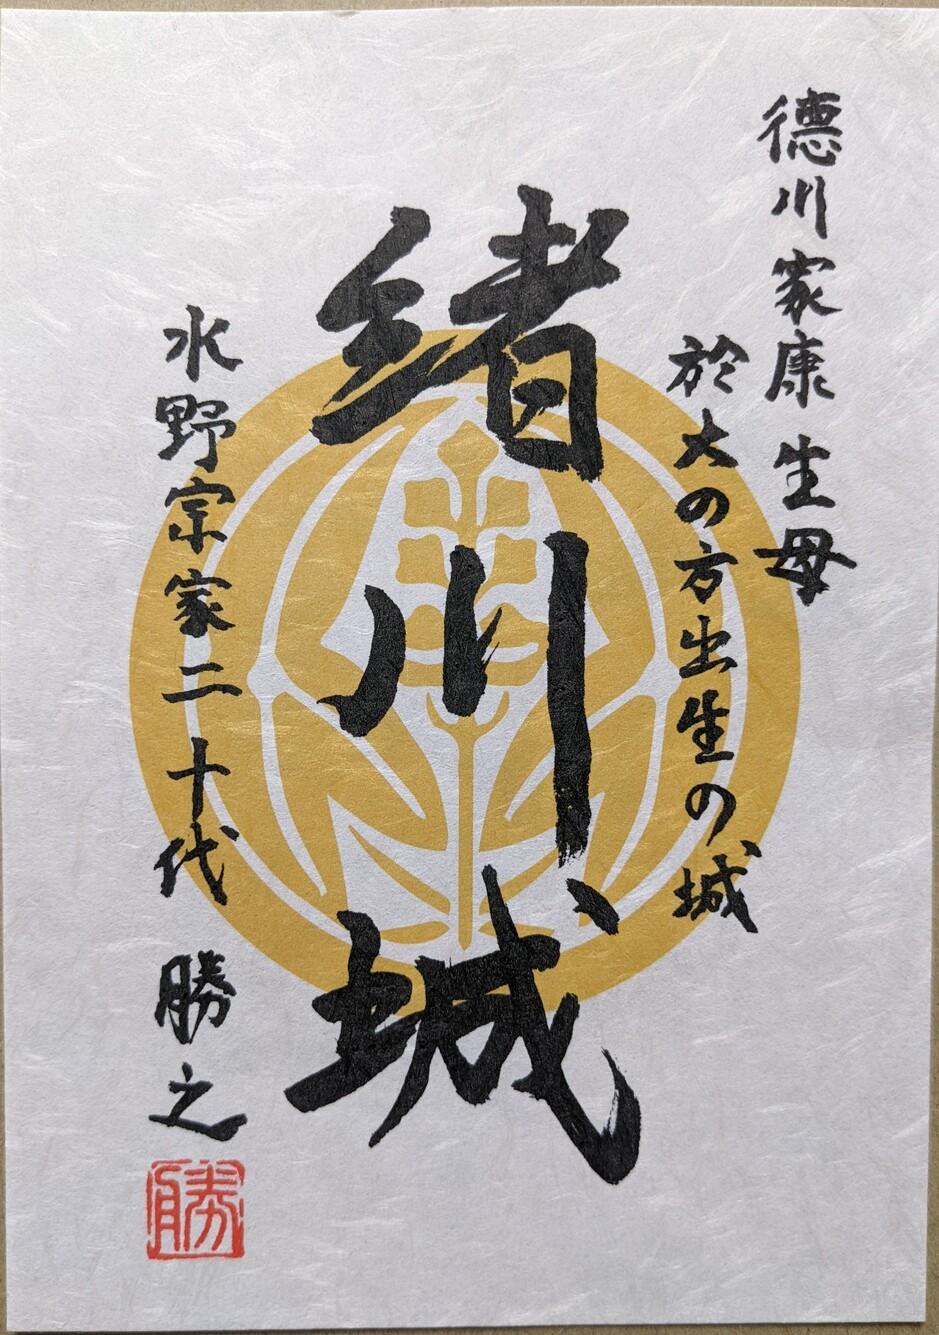 徳川家康生母
於大の方出生の城
緒川城
水野宗家二十代 勝之
勝